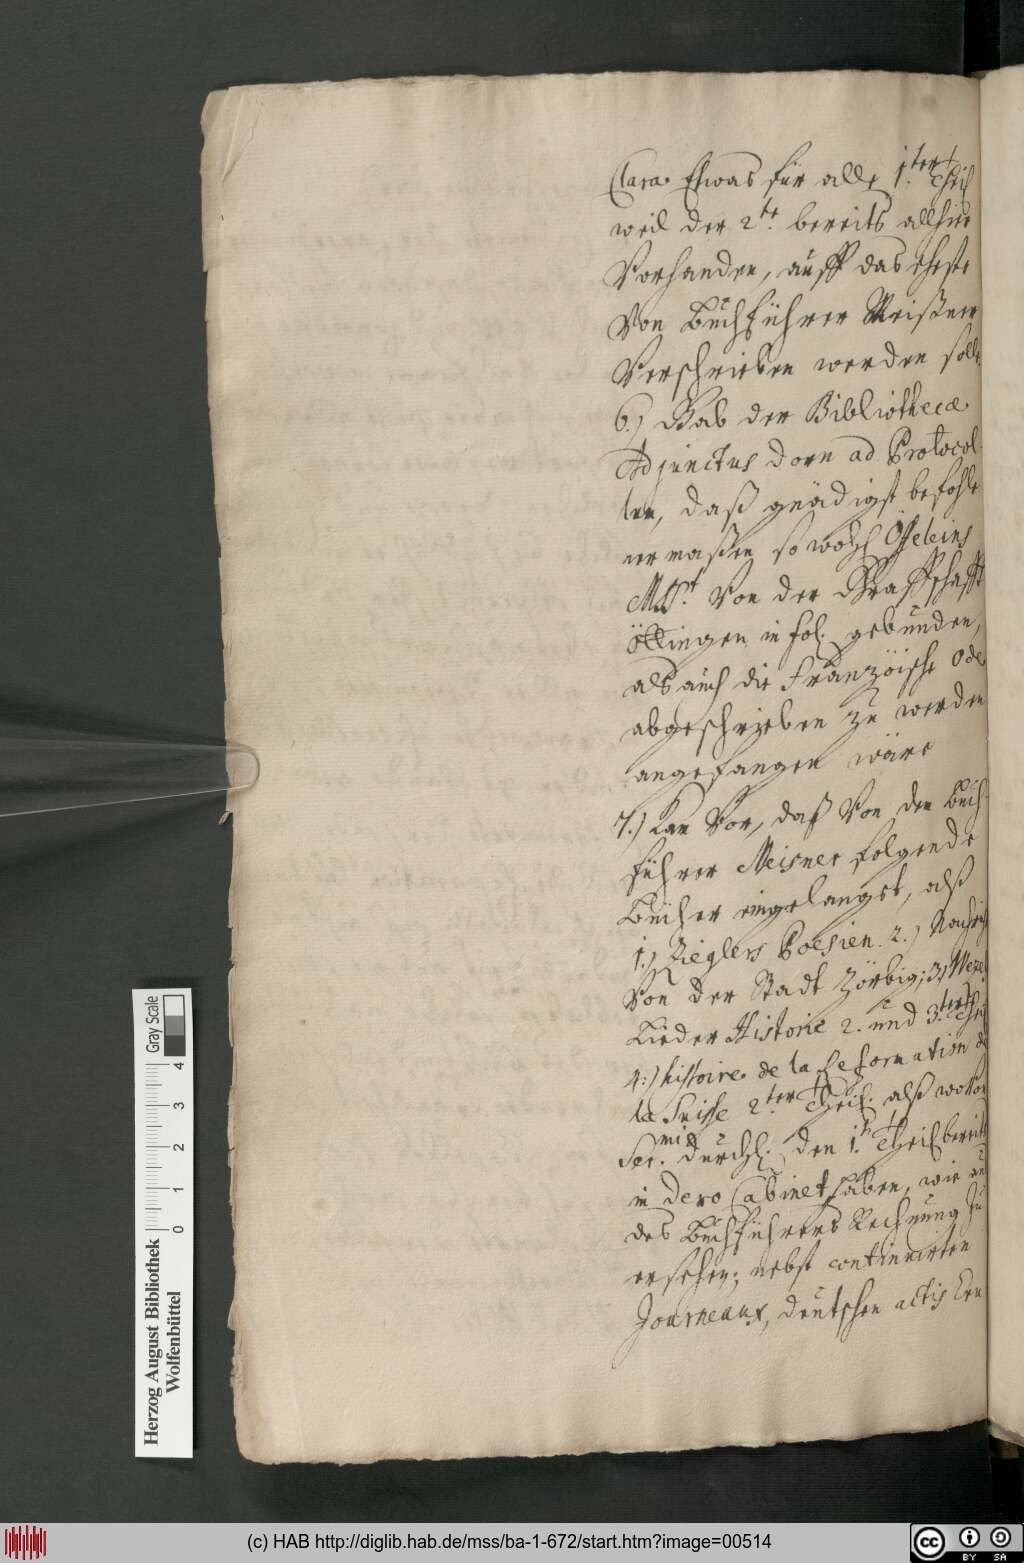 Clara Etwas für alle 1.ter Theil
weil der 2.te bereits allhier
Vorhanden, auff das eheste
Von Buchführer Meißner
Verschrieben werden solle
6.) Gab der Bibliothecæ
Adjunctus Dorn ad Protocol-
len, daß gnädigst befohle
ner maßen so wohl Öffeleins
MSt. Von der Graffschafft
Öttingen in fol. gebunden,
als auch die Französche Ode
abgeschrieben zu werden
angefangen wäre
7.) Kam Vor, daß Von den Buch-
führer Meisner folgende
Bücher eingelanget, alß
1.) Zieglers Poesien. 2.) Nachricht
Von der Stadt Zörbig; 3.) Wezels
Lieder Historie 2. und 3.ter Theil
4.) histoire de la Reformation de
la Suisse 2.ter Theil. alß wovon
Ser.mi Durchl. den 1.t Theil bereits
in dero Cabinet haben, wie aus
des Buchführers Rechnung zu
ersehen; nebst continuirten
Journeaux, deutschen actis Eru
(c) HAB http://diglib.hab.de/mss/ba-1-672/start.htm?image=00514
Herzog August Bibliothek
Wolfenbüttel
Gray Scale
0 1 2 3 4
cc BY SA